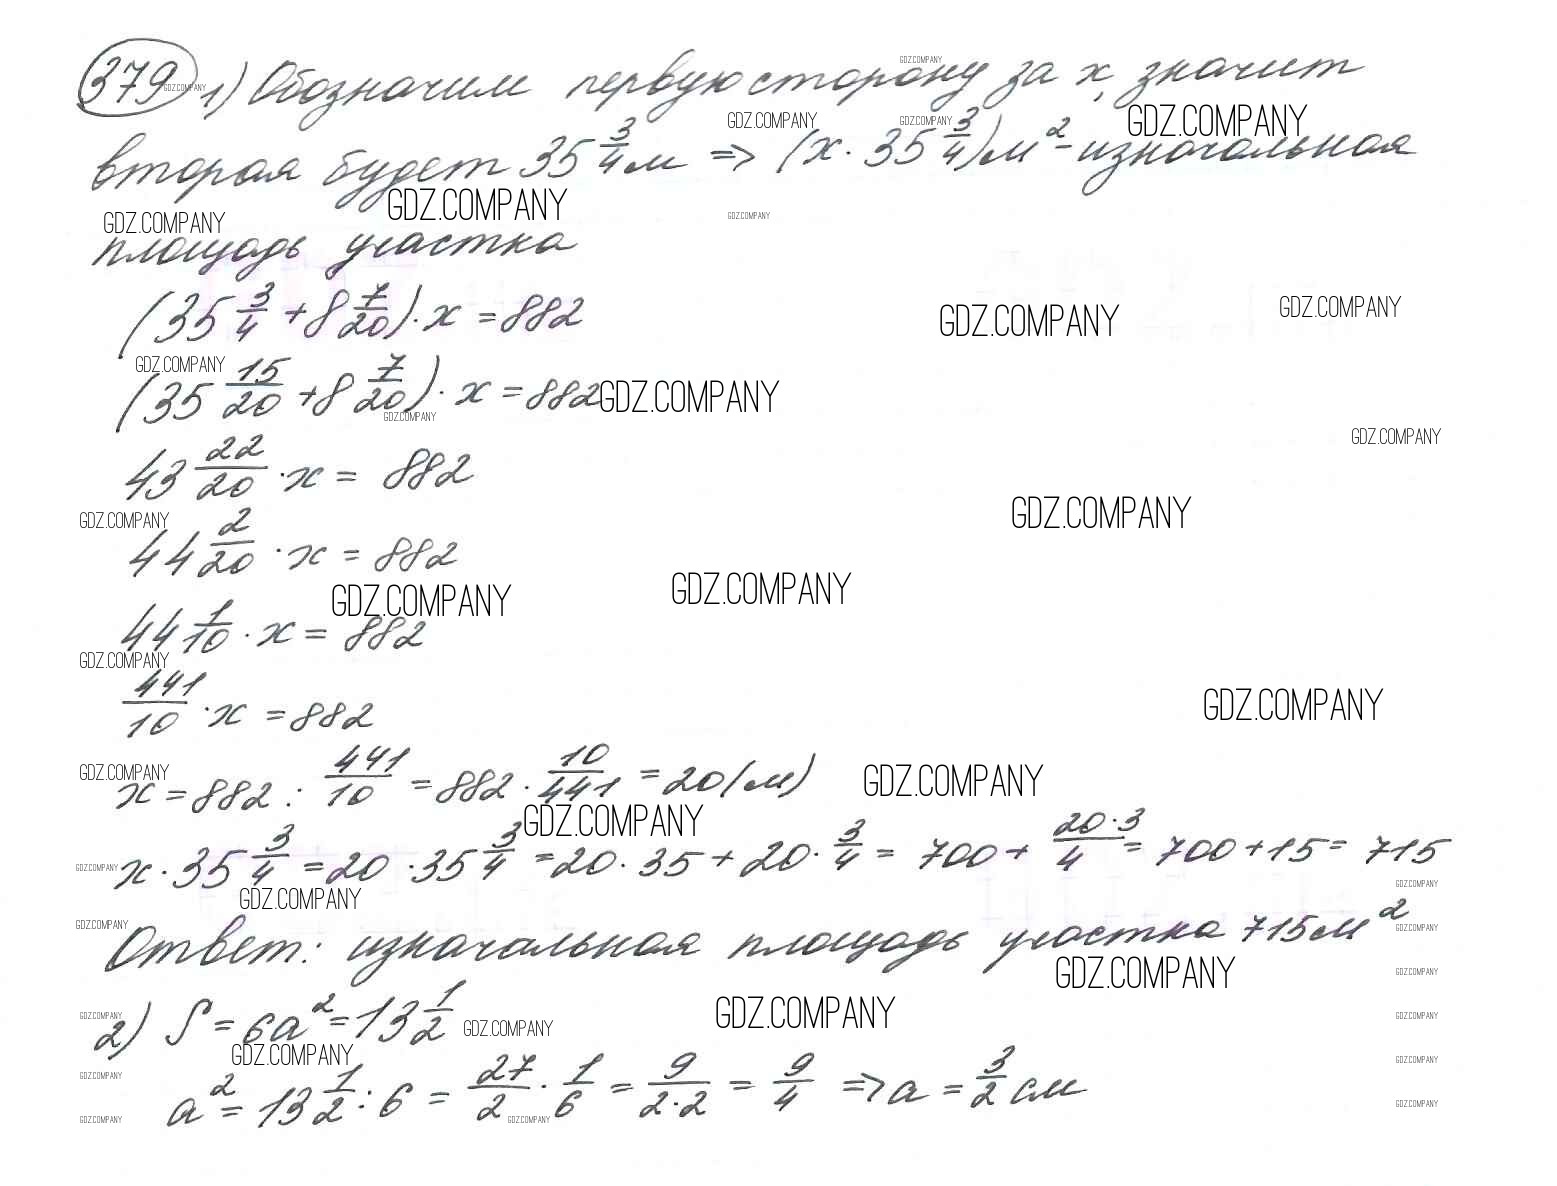 379 1) Обозначим первую сторону за x, значит
вторая будет 35 3/4 м => (x · 35 3/4) м² - изначальная
площадь участка
(35 3/4 + 8 7/20) · x = 882
(35 15/20 + 8 7/20) · x = 882
43 22/20 · x = 882
44 2/20 · x = 882
44 1/10 · x = 882
441/10 · x = 882
x = 882 : 441/10 = 882 · 10/441 = 20 (м)
x · 35 3/4 = 20 · 35 3/4 = 20 · 35 + 20 · 3/4 = 700 + 20·3/4 = 700 + 15 = 715
Ответ: изначальная площадь участка 715 м²
2) S = 6a² = 13 1/2
a² = 13 1/2 : 6 = 27/2 · 1/6 = 9/2·2 = 9/4 => a = 3/2 см
GDZ.COMPANY